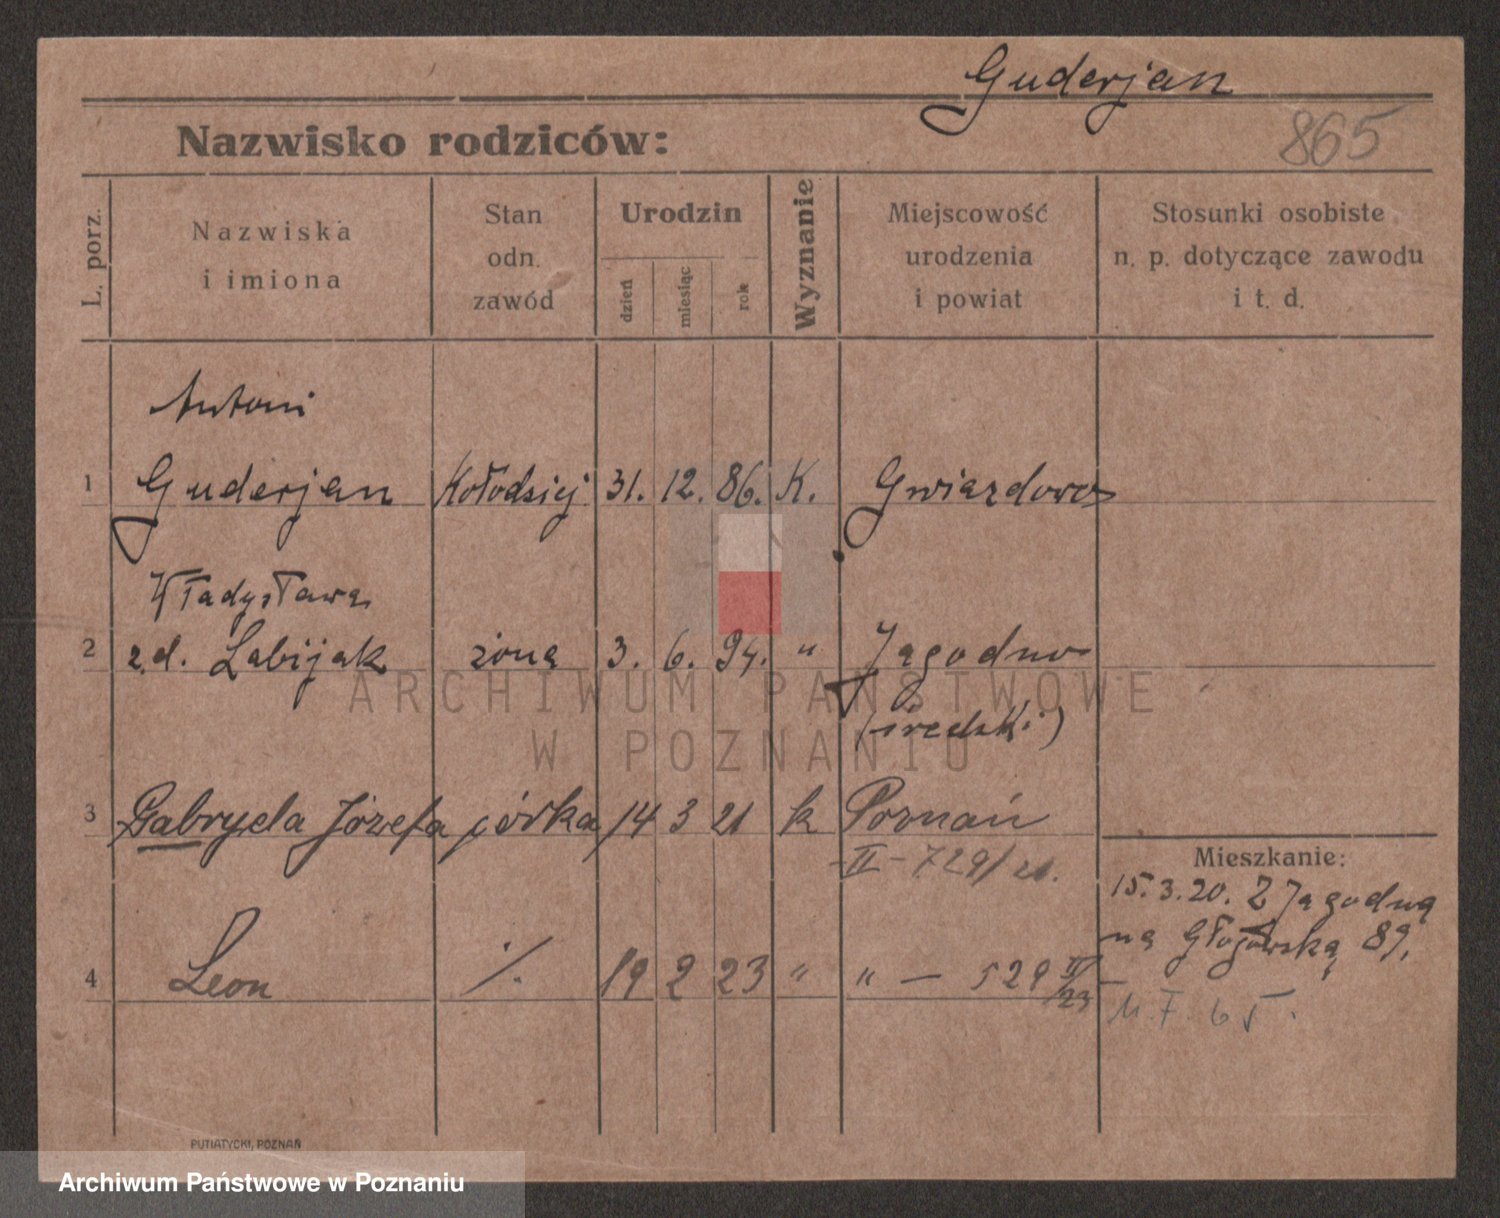 Guderjan
865
Nazwisko rodziców:
L. porz.
Nazwiska
i imiona
Stan
odn.
zawód
Urodzin
dzień
miesiąc
rok
Wyznanie
Miejscowość
urodzenia
i powiat
Stosunki osobiste
n. p. dotyczące zawodu
i t. d.
Antoni
1 Guderjan Kołodziej 31. 12. 86. K. Gwiazdowo
Władysława
2 z.d. Labijak żona 3. 6. 94. " Jagodno
(średzki)
3 Gabryela Józefa córka 14 3 21 k Poznań
II - 729/21.
Mieszkanie:
15.3.20. Z Jagodna
na Głogowską 89.
4 Leon ./. 19 2 23 " " — 529 II/23
65.
ARCHIWUM PAŃSTWOWE
W POZNANIU
PUTIATYCKI, POZNAŃ
Archiwum Państwowe w Poznaniu